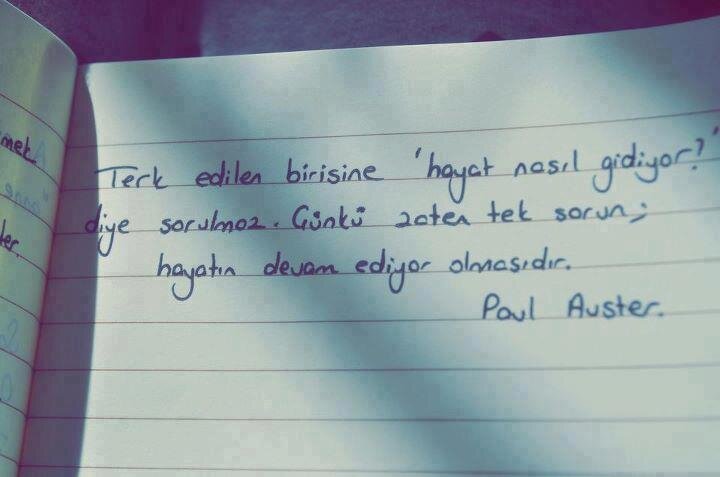 mek
ler.
Terk edilen birisine 'hayat nasıl gidiyor?'
diye sorulmaz. Günkü zaten tek sorun;
hayatın devam ediyor olmasıdır.
Paul Auster.